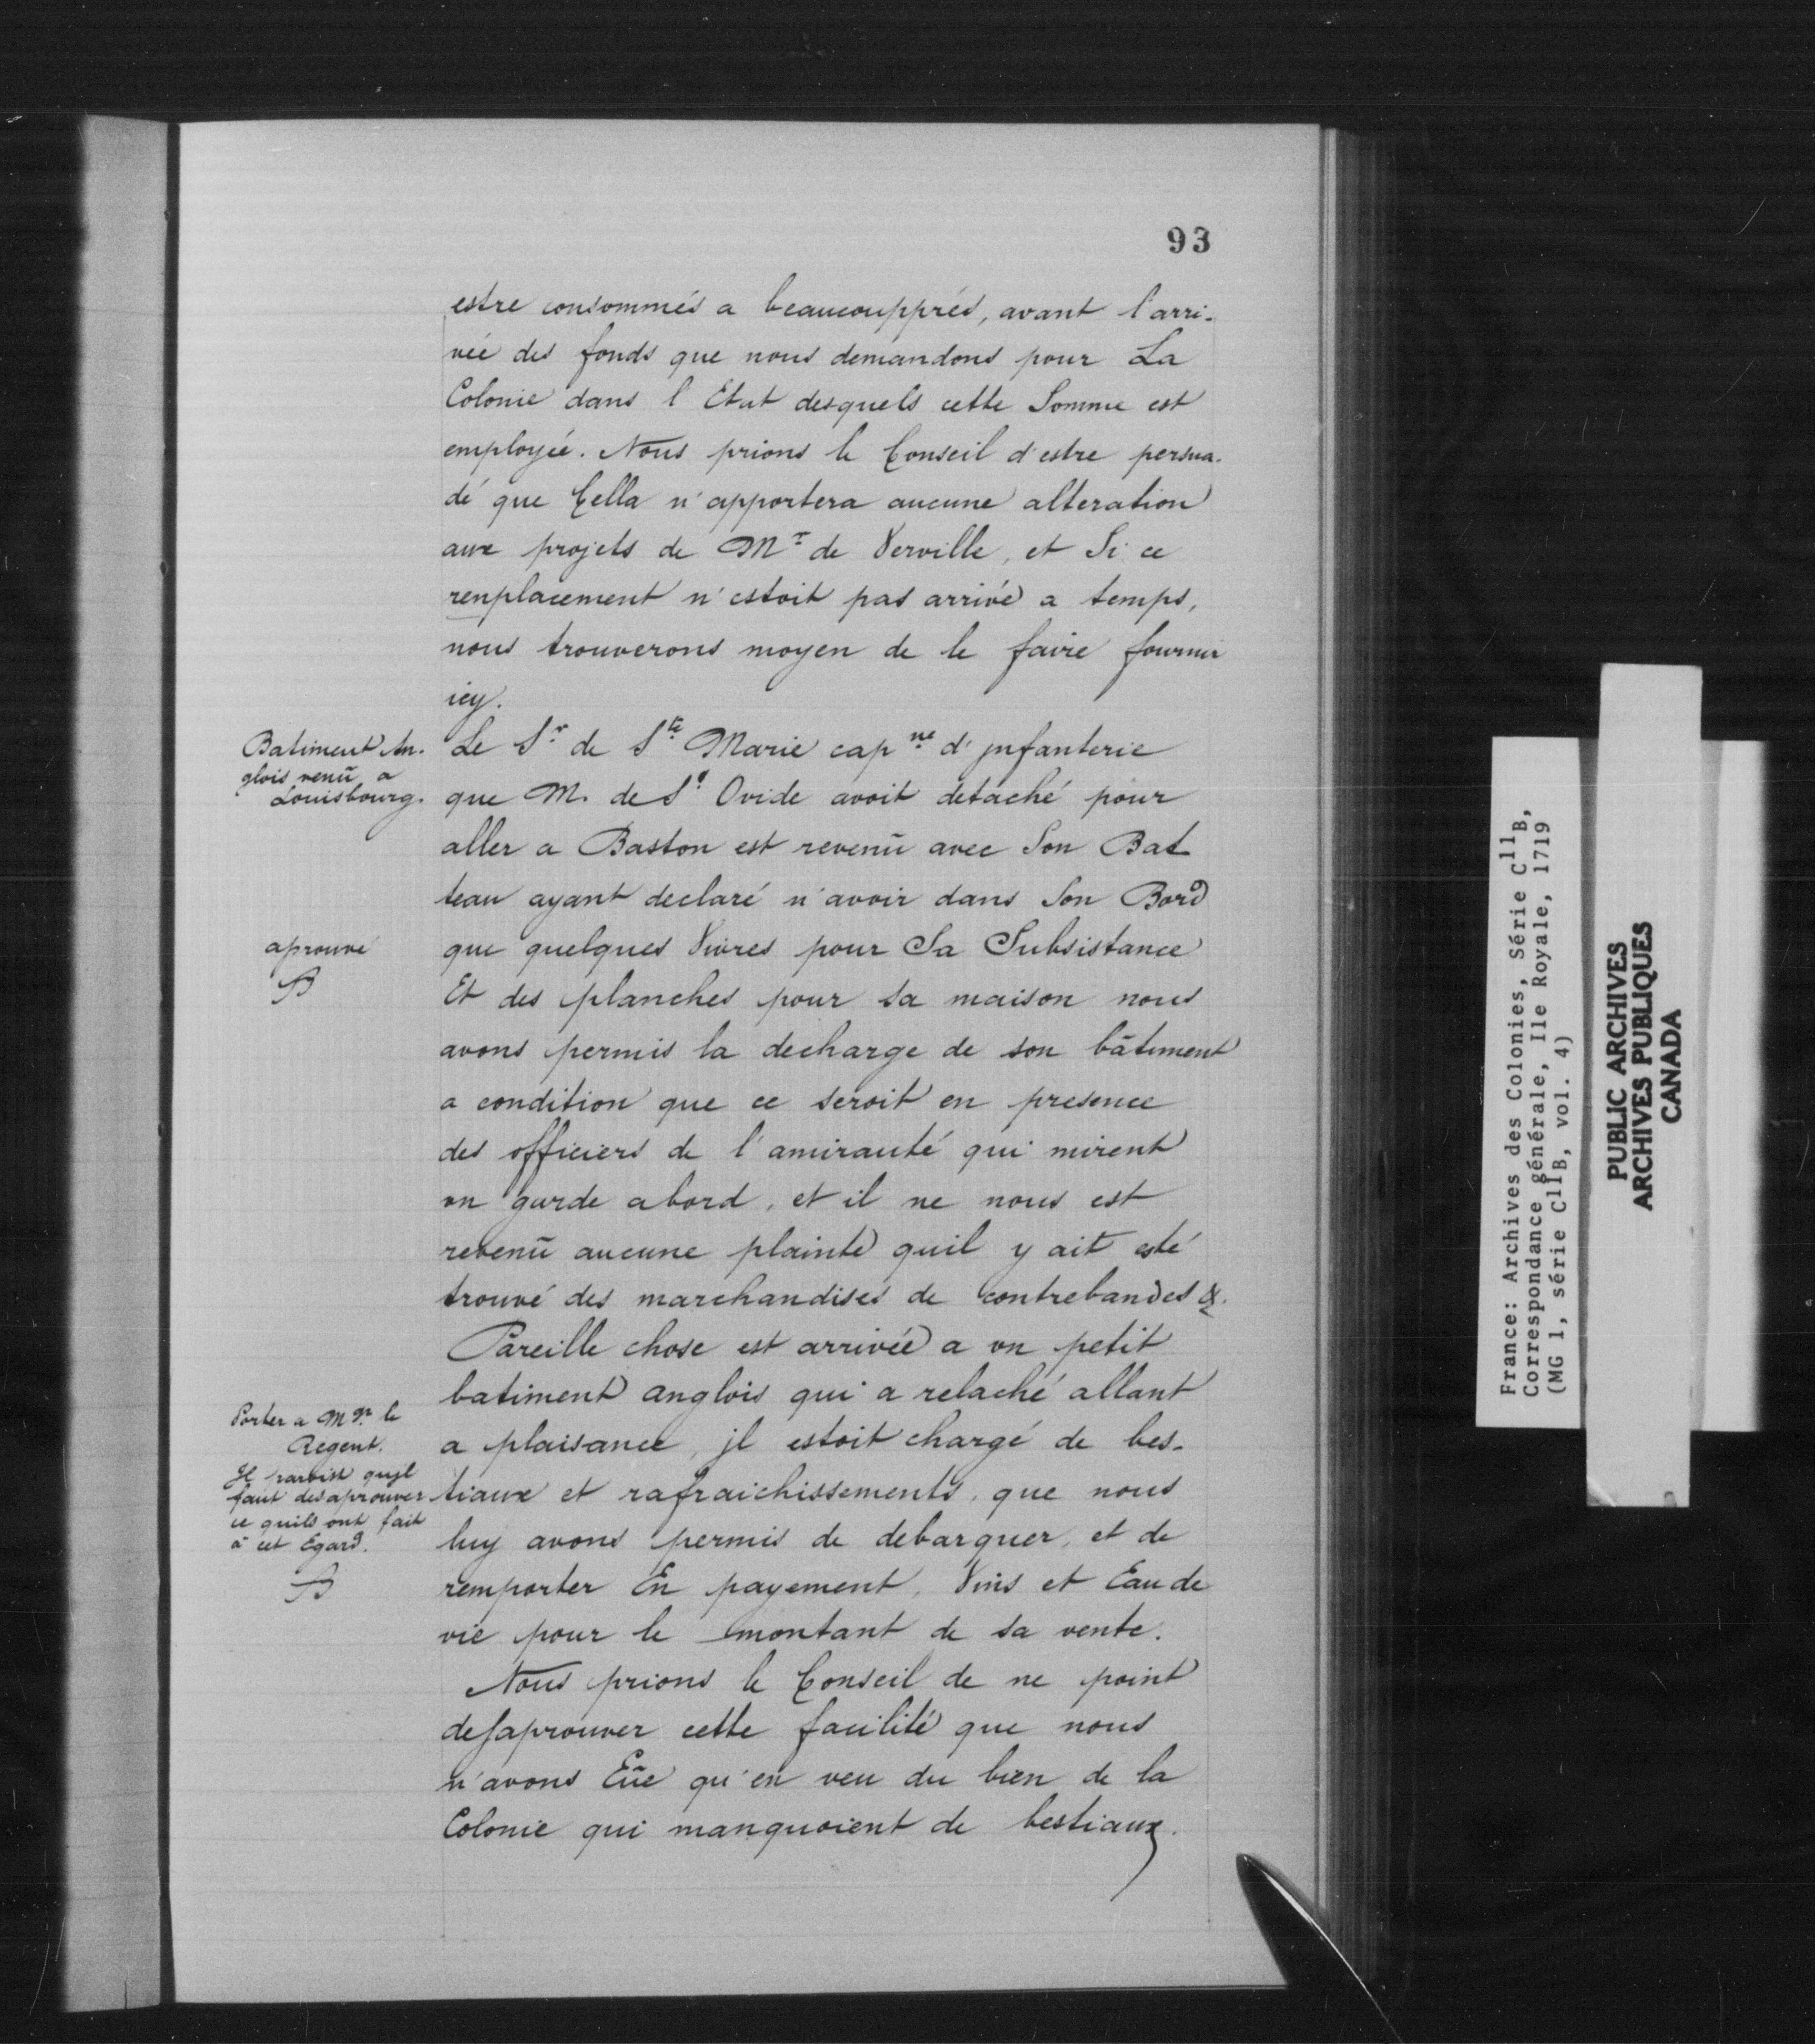 93
estre consommés a beaucouppres, avant l'arri-
vée des fonds que nous demandons pour La
Colonie dans l'Etat desquels cette Somme est
employée. Nous prions le Conseil d'estre persua-
dé que Cella n'apportera aucune alteration
aux projets de Mr de Verville, et Si ce
renplacement n'estoit pas arrivé a temps,
nous trouverons moyen de le faire fournir
icy.
Batiment An-
glois venû a
Louisbourg.
Le Sr de Ste Marie capne d'jnfanterie
que M. de St Ovide avoit detaché pour
aller a Baston est revenû avec Son Bat
teau ayant declaré n'avoir dans Son Bord
aprouvé
B
que quelques Vivres pour Sa Subsistance
Et des planches pour sa maison nous
avons permis la decharge de son bâtiment
a condition que ce seroit en presence
des officiers de l'amirauté qui mirent
un garde abord, et il ne nous est
revenû aucune plainte quil y ait esté
trouvé des marchandises de contrebandes &.
Pareille chose est arrivée a un petit
batiment anglois qui a relaché allant
Porter a Mgr le
Regent.
Il paroist qujl
faut desaprouver
ce quils ont fait
à cet Egard.
B
a plaisance, jl estoit chargé de bes-
tiaux et rafraichissements, que nous
luy avons permis de debarquer, et de
remporter En payement, Vins et Eau de
vie pour le montant de sa vente.
Nous prions le Conseil de ne point
desaprouver cette facilité que nous
n'avons Eüe qu'en veu du bien de la
Colonie qui manquoient de bestiaux.
France: Archives des Colonies, Série C11B,
Correspondance générale, Ile Royale, 1719
(MG 1, série C11B, vol. 4)
PUBLIC ARCHIVES
ARCHIVES PUBLIQUES
CANADA